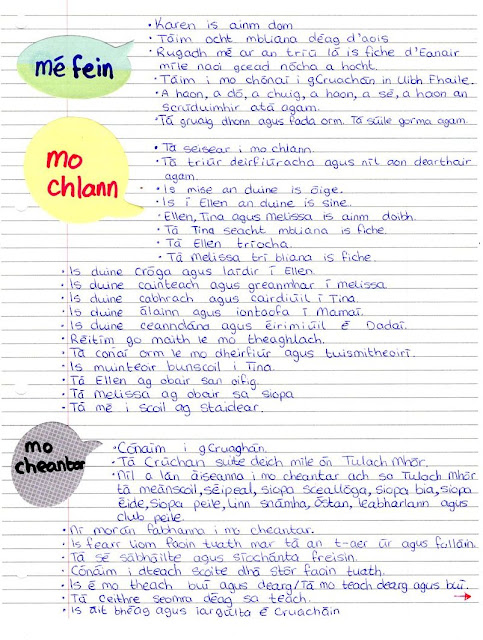 mé fein
• Karen is ainm dom
• Táim ocht mbliana déag d'aois
• Rugadh mé ar an tríú lá is fiche d'Eanair
míle naoi gcead nócha a hocht.
• Táim i mo chónaí i gCruachán in Uibh Fhaile.
• A haon, a dó, a chuig, a haon, a sé, a haon an
scrúduimhir atá agam.
• Tá gruaig dhonn agus fada orm. Tá súile gorma agam.
mo
chlann
• Tá seisear i mo chlann.
• Tá triúr deirfiúracha agus níl aon dearthair
agam.
• Is mise an duine is óige.
• Is í Ellen an duine is sine.
• Ellen, Tina agus Melissa is ainm doibh.
• Tá Tina seacht mbliana is fiche.
• Tá Ellen tríocha.
• Tá Melissa trí bliana is fiche.
• Is duine cróga agus laidir í Ellen.
• Is duine cainteach agus greannmhar í melissa
• Is duine cabhrach agus cairdiúil í Tina.
• Is duine álainn agus iontaofa í Mamaí.
• Is duine ceanndána agus éirimiúil é Dadaí.
• Réitím go maith le mo theaghlach.
• Tá cónaí orm le mo dheirfiúr agus tuismitheoirí.
• Is muinteoir bunscoil í Tina.
• Tá Ellen ag obair san oifig.
• Tá Melissa ag obair sa siopa
• Tá mé i scoil ag staidéar.
mo
cheantar
• Cónaim i gCruachán.
• Tá Crúchan suite deich míle ón Tulach Mhór.
• Níl a lán áiseanna i mo cheantar ach sa Tulach Mhór
tá meánscoil, séipeal, siopa sceallóga, siopa bia, siopa
éide, siopa peile, linn snámha, óstan, leabharlann agus
club peile.
• Ní morán fabhanna i mo cheantar.
• Is fearr liom faoin tuath mar tá an t-aer úr agus folláin.
• Tá sé sábháilte agus síochánta freisin.
• Cónaim i dteach scoite dhá stór faoin tuath.
• Is é mo theach buí agus dearg/Tá mo teach dearg agus buí.
• Tá ceithre seomra déag sa teach.
• Is áit bhéag agus iargúlta é Cruacháin